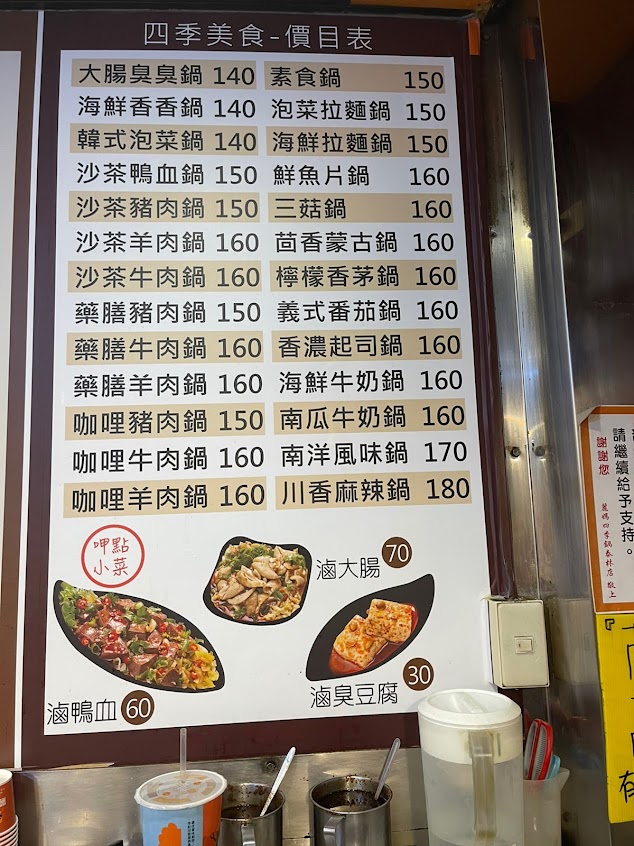 四季美食-價目表
大腸臭臭鍋 140
海鮮香香鍋 140
韓式泡菜鍋 140
沙茶鴨血鍋 150
沙茶豬肉鍋 150
沙茶羊肉鍋 160
沙茶牛肉鍋 160
藥膳豬肉鍋 150
藥膳牛肉鍋 160
藥膳羊肉鍋 160
咖哩豬肉鍋 150
咖哩牛肉鍋 160
咖哩羊肉鍋 160
素食鍋 150
泡菜拉麵鍋 150
海鮮拉麵鍋 150
鮮魚片鍋 160
三菇鍋 160
茴香蒙古鍋 160
檸檬香茅鍋 160
義式番茄鍋 160
香濃起司鍋 160
海鮮牛奶鍋 160
南瓜牛奶鍋 160
南洋風味鍋 170
川香麻辣鍋 180
呷點
小菜
滷大腸 70
滷鴨血 60
滷臭豆腐 30
請繼續給予支持。
謝謝您